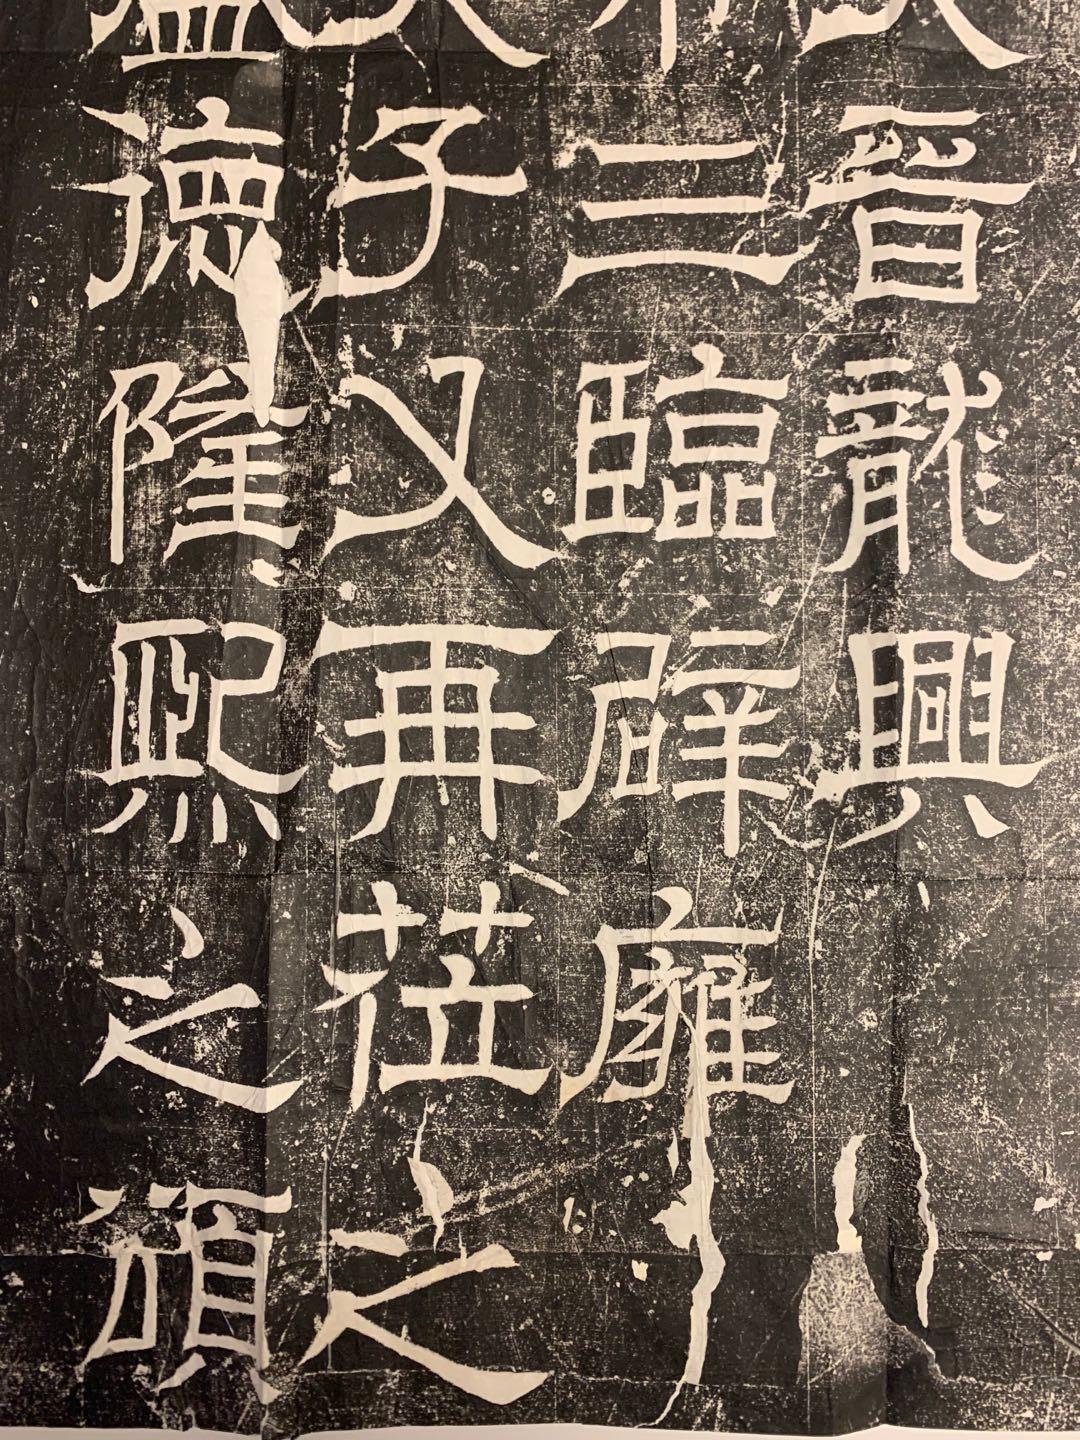 晉龍興
三臨辟廱
子又再莅之
德隆熙之頌